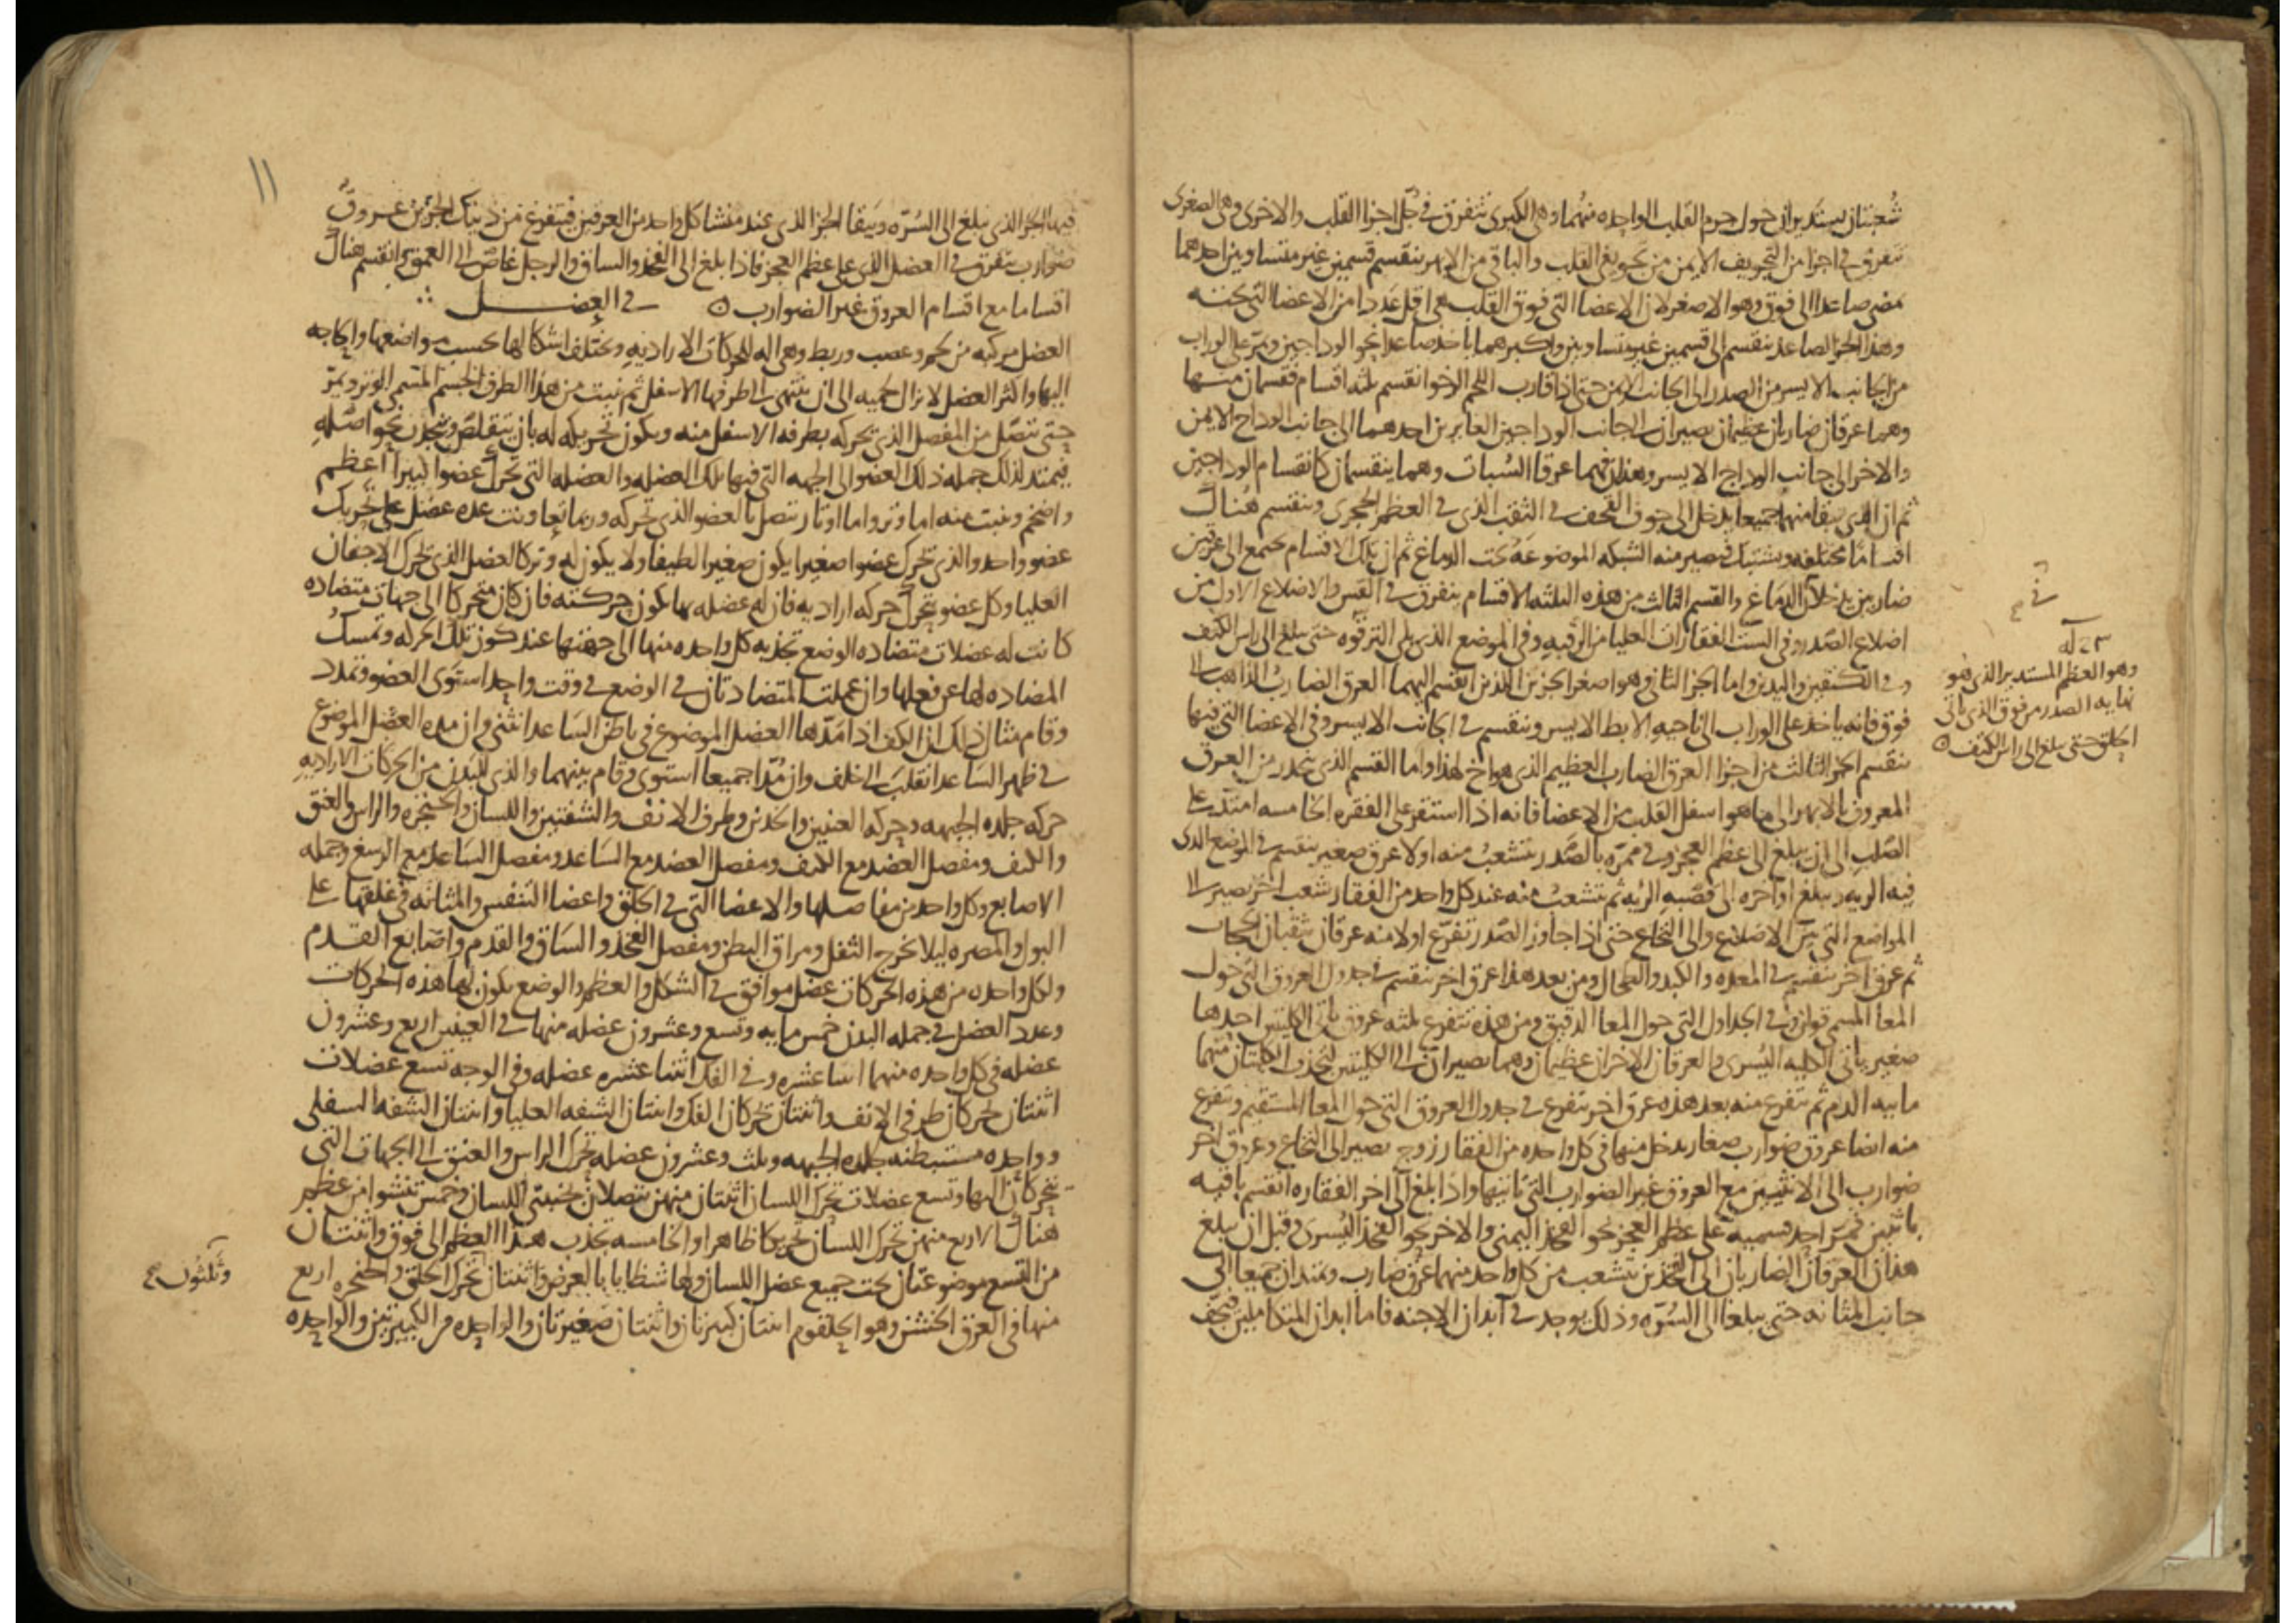 شعبتان يستديران حول جرم القلب الواحده منهما وهى الكبرى تتفرق فى كل اجزا القلب والاخرى وهى الصغرى
تتفرق فى اجزا من التجويف الايمن من تجويفى القلب والباقى من الابهر ينقسم قسمين غير متساويين احدهما
يمضى صاعدا الى فوق وهو الاصغر لان الاعضا التى فوق القلب هى اقل عددا من الاعضا التى تحته
وهذا الجزا الصاعد ينقسم الى قسمين غير متساويين واكبرهما ياخذ صاعدا نحو الوداجين ويمر على الوراب
من الجانب الايسر من الصدر الى الجانب الايمن حتى اذا قارب اللحم الرخو انقسم ثلثه اقسام فقسمان منها
وهما عرقان ضاربان عظيمان يصيران الى جانب الوداجين الغايرين احدهما الى جانب الوداج الايمن
والاخر الى جانب الوداج الايسر وهذان هما عرقا السبات وهما ينقسمان كانقسام الوداجين
ثم ان الذى يبقا منهما جميعا يدخل الى جوف القحف فى الثقب الذى فى العظم الحجرى وينقسم هناك
اقساما مختلفه ويشتبك فيصير منه الشبكه الموضوعه تحت الدماغ ثم ان تلك الاقسام تجتمع الى عرقين
ضاربين يدخلان الدماغ والقسم الثالث من هذه الثلثه الاقسام يتفرق فى القس والاضلاع الاول من
اضلاع الصدر وفى الست الفقارات العليا من الرقبه وفى الموضع الذى يلى الترقوه حتى يبلغ الى راس الكتف
وفى الكتفين واليدين واما الجزا الثانى وهو اصغر الجزين اللذين انقسم اليهما العرق الضارب الذاهب الى
فوق فانه ياخذ على الوراب الى ناحيه الابط الايسر وينقسم فى الجانب الايسر وفى الاعضا التى فيها
ينقسم الجزا الثالث من اجزا العرق الضارب العظيم الذى هو اخ لهذا واما القسم الذى ينحدر من العرق
المعروف بالابهر الى ما هو اسفل القلب من الاعضا فانه اذا استقر على الفقره الخامسه امتد على
الصلب الى ان يبلغ الى عظم العجز وفى ممره بالصدر تتشعب منه اولا عرق صغير ينقسم فى الموضع الذى
فيه الريه ويبلغ اواخره الى قصبه الريه ثم تتشعب منه عند كل واحد من الفقار شعب اخر يصير الى
المواضع التى بين الاضلاع والى النخاع حتى اذا جاوز الصدر تفرع اولا منه عرقان يثقبان الحجاب
ثم عرق اخر ينقسم فى المعده والكبد والطحال ومن بعد هذا عرق اخر ينقسم فى جدول العروق التى حول
المعا المسمى قولون وفى الجداول التى حول المعا الدقيق ومن هذه تتفرع ثلثه عروق ياتى الكليتين احدها
صغير ياتى الكليه اليسرى والعرقان الاخران عظيمان وهما يصيران الى الكليتين لتجذب الكليتان منهما
مايه الدم ثم تتفرع منه بعد هذه عرق اخر تتفرع فى جدول العروق التى حول المعا المستقيم وتتفرع
منه ايضا عروق ضوارب صغار يدخل منها فى كل واحده من الفقار زوج يصير الى النخاع وعروق اخر
ضوارب الى الانثيين مع العروق غير الضوارب التى تاتيها واذا بلغ الى اخر الفقاره انقسم باقيه
باثنين فيمر احد قسميه على عظم العجز نحو الفخذ اليمنى والاخر نحو الفخذ اليسرى وقبل ان يبلغ
هذان العرقان الضاربان الى الفخذين تتشعب من كل واحد منهما عرق ضارب ويمتدان جميعا الى
جانب المثانه حتى يبلغا الى السره وذلك يوجد فى ابدان الاجنه فاما ابدان المتكاملين فيجف
وهو العظم المستدير الذى هو
نهايه الصدر من فوق الذى ياتى
الحلق حتى يبلغ الى راس الكتف
١١
فيها الجزا الذى يبلغ الى السره ويبقا الجزا الذى عند منشا كل واحد من العرقين فيتفرغ من ذينك الجزين عروق
ضوارب تتفرق فى العضل الذى على عظم العجز فاذا بلغ الى الفخذ والساق والرجل غاص الى العمق وانقسم هناك
اقساما مع اقسام العروق غير الضوارب فى العضل
العضل مركبه من لحم وعصب وربط وهى اله للحركات الاراديه وتختلف اشكالها بحسب مواضعها والحاجه
اليها واكثر العضل لا تزال لحميه الى ان تنتهى الى طرفها الاسفل ثم ينبت من هذا الطرف الجسم المسمى الوتر ويمر
حتى يتصل من المفصل الذى تحركه بطرفه الاسفل منه ويكون تحريكه له بان يتقلص وينجذب نحو اصله
فيمتد لذلك جمله ذلك العضو الى الجهه التى فيها تلك العضله والعضله التى تحرك عضوا كبيرا اعظم
واضخم وينبت منه اما وتر واما اوتار تتصل بالعضو الذى تحركه وربما تعاونت عده عضل على تحريك
عضو واحد والذى تحرك عضوا صغيرا يكون صغيرا لطيفا ولا يكون له وتر كالعضل الذى تحرك الاجفان
العليا وكل عضو يتحرك حركه اراديه فان له عضله بها يكون حركته فان كان متحركا الى جهات متضاده
كانت له عضلات متضاده الوضع تجذبه كل واحده منها الى جهتها عند كون تلك الحركه وتمسك
المضاده لها عن فعلها وان عملت المتضادتان فى الوضع فى وقت واحد استوى العضو وتمدد
وقام مثال ذلك ان الكف اذا مدها العضل الموضوع فى باطن الساعد انثنى وان مده العضل الموضوع
فى ظهر الساعد انقلب الى خلف وان مدا جميعا استوى وقام بينهما والذى للبدن من الحركات الاراديه
حركه جلده الجبهه وحركه العينين والخدين وطرف الانف والشفتين واللسان والحنجره والراس والعنق
والكتف ومفصل العضد مع الكتف ومفصل العضد مع الساعد ومفصل الساعد مع الرسغ وجمله
الاصابع وكل واحد من مفاصلها والاعضا التى فى الحلق واعضا التنفس والمثانه فى غلقها على
البول والمصره ليلا يخرج الثفل ومراق البطن ومفصل الفخذ والساق والقدم واصابع القدم
ولكل واحده من هذه الحركات عضل موافق فى الشكل والعظم والوضع يكون بها هذه الحركات
وعدد العضل فى جمله البدن خمس مايه وتسع وعشرون عضله منها فى العينين اربع وعشرون
عضله فى كل واحده منهما اثنا عشره وفى الفك اثنتا عشره عضله وفى الوجه تسع عضلات
اثنتان تحركان طرفى الانف واثنتان تحركان الفك واثنتان الشفه العليا واثنتان الشفه السفلى
وواحده مستبطنه جلده الجبهه وثلث وعشرون عضله تحرك الراس والعنق الى الجهات التى
يتحركان اليها وتسع عضلات تحرك اللسان اثنتان منهن تتصلان بجنبتى اللسان وخمس تنشوا من عظم
هناك الاربع منهن تحرك اللسان تحريكا ظاهرا والخامسه تجذب هذا العظم الى فوق واثنتان
من التسع موضوعتان تحت جميع عضل اللسان ولها شظايا بالعرض واثنتان تحرك الحلق والحنجره اربع
منها فى العرق الخشن وهو الحلقوم اثنتان كبيرتان واثنتان صغيرتان والواحده من الكبيرتين والواحده
وثلثون صح